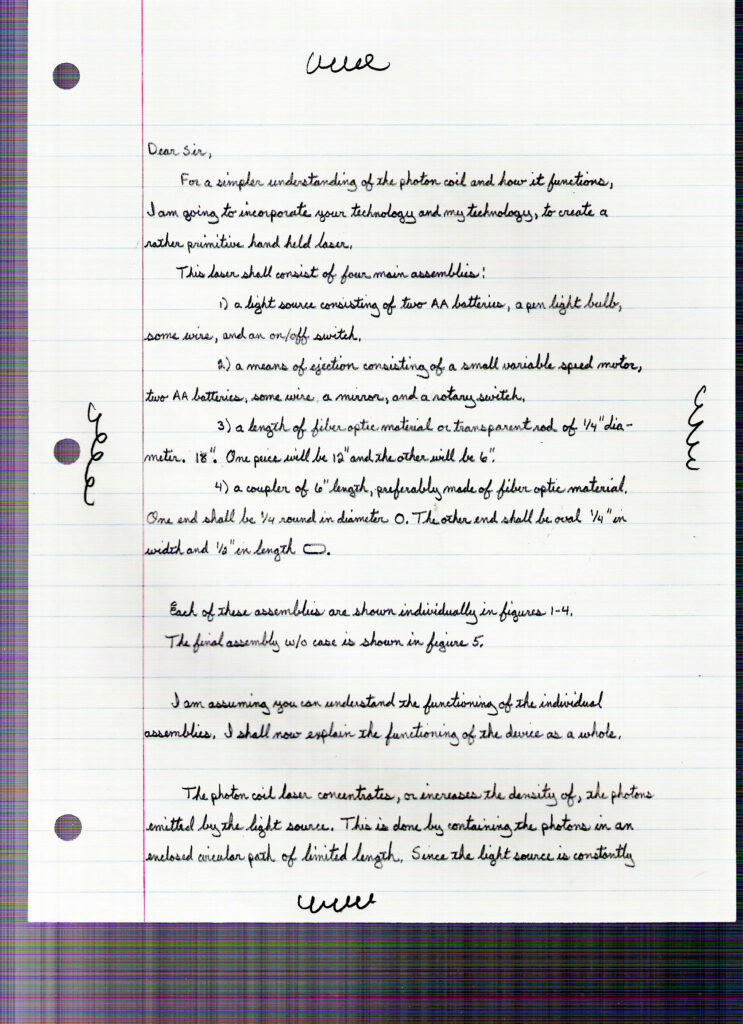 Dear Sir,
For a simpler understanding of the photon coil and how it functions,
I am going to incorporate your technology and my technology, to create a
rather primitive hand held laser.
This laser shall consist of four main assemblies:
1) a light source consisting of two AA batteries, a pen light bulb,
some wire, and an on/off switch.
2) a means of ejection consisting of a small variable speed motor,
two AA batteries, some wire, a mirror, and a rotary switch.
3) a length of fiber optic material or transparent rod of 1/4" dia-
meter. 18". One peice will be 12" and the other will be 6".
4) a coupler of 6" length, preferably made of fiber optic material.
One end shall be 1/4 round in diameter O. The other end shall be oval 1/4" in
width and 1/2" in length.
Each of these assemblies are shown individually in figures 1-4.
The final assembly w/o case is shown in figure 5.
I am assuming you can understand the functioning of the individual
assemblies. I shall now explain the functioning of the device as a whole.
The photon coil laser concentrates, or increases the density of, the photons
emitted by the light source. This is done by containing the photons in an
enclosed circular path of limited length. Since the light source is constantly